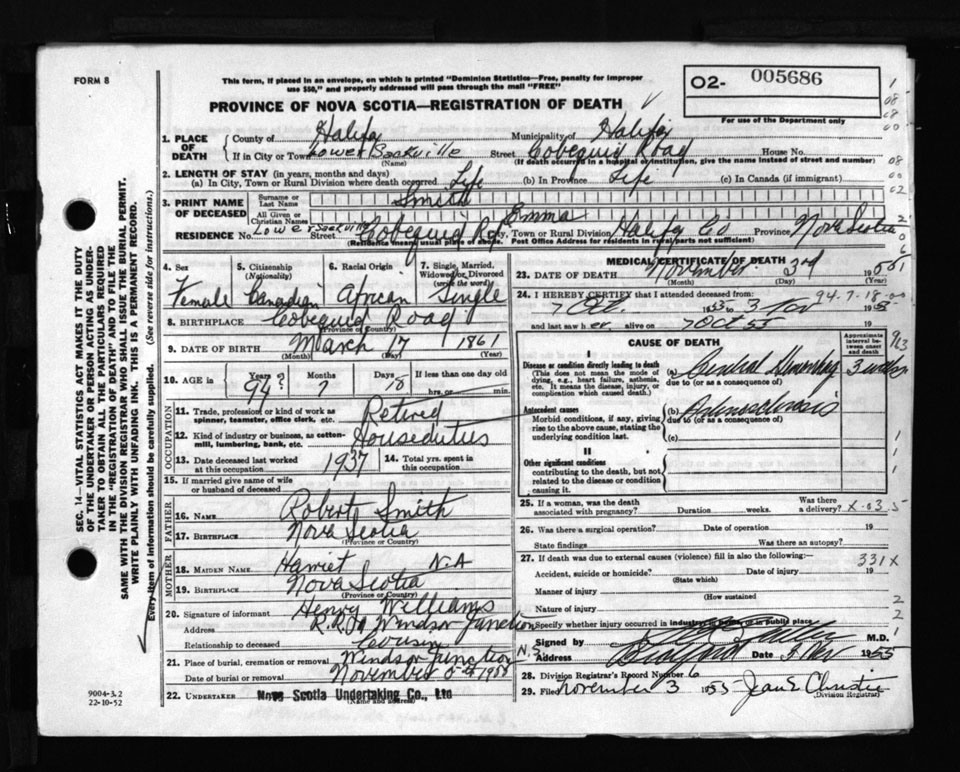 FORM 8
This form, if placed in an envelope, on which is printed "Dominion Statistics—Free, penalty for improper
use $50," and properly addressed will pass through the mail "FREE"
PROVINCE OF NOVA SCOTIA—REGISTRATION OF DEATH
O2- 005686
For use of the Department only
1. PLACE OF DEATH
County of Halifax Municipality of Halifax
If in City or Town Lower Sackville Street Cobequid Road House No.
(Name) (If death occurred in a hospital or institution, give the name instead of street and number)
2. LENGTH OF STAY (in years, months and days)
(a) In City, Town or Rural Division where death occurred Life (b) In Province Life (c) In Canada (if immigrant)
3. PRINT NAME OF DECEASED
Surname or Last Name Smith
All Given or Christian Names Emma
RESIDENCE No. Lower Sackville Street Cobequid Rd City, Town or Rural Division Halifax Co Province Nova Scotia
(Residence means usual place of abode. Post Office Address for residents in rural parts not sufficient)
4. Sex Female
5. Citizenship (Nationality) Canadian
6. Racial Origin African
7. Single, Married, Widowed or Divorced (write the word) Single
8. BIRTHPLACE Cobequid Road
(Province or Country)
9. DATE OF BIRTH March 17 1861
(Month) (Day) (Year)
10. AGE in Years 94 Months 7 Days 18 If less than one day old
hrs. or min.
OCCUPATION
11. Trade, profession or kind of work as
spinner, teamster, office clerk, etc. Retired
12. Kind of industry or business, as cotton-
mill, lumbering, bank, etc. Houseduties
13. Date deceased last worked
at this occupation 1937
14. Total yrs. spent in
this occupation
15. If married give name of wife
or husband of deceased
FATHER
16. NAME Robert Smith
17. BIRTHPLACE Nova Scotia
(Province or Country)
MOTHER
18. MAIDEN NAME Harriet N.A
19. BIRTHPLACE Nova Scotia
(Province or Country)
20. Signature of informant Henry Williams
Address R.R. Windsor Junction N.S.
Relationship to deceased Cousin
21. Place of burial, cremation or removal Windsor Junction
Date of burial or removal November 5th
22. UNDERTAKER Nova Scotia Undertaking Co., Ltd
(Name and address)
MEDICAL CERTIFICATE OF DEATH
23. DATE OF DEATH November 3rd 1955
(Month) (Day) (Year)
24. I HEREBY CERTIFY that I attended deceased from:
94-7-18-00
and last saw her alive on 7 Oct 55
CAUSE OF DEATH
Approximate interval between onset and death
I
Disease or condition directly leading to death
(This does not mean the mode of
dying, e.g., heart failure, asthenia,
etc. It means the disease, injury, or
complication which caused death.)
(a) Cerebral Hemorrhage
due to (or as a consequence of)
Antecedent causes
Morbid conditions, if any, giving
rise to the above cause, stating the
underlying condition last.
(b) Arteriosclerosis
due to (or as a consequence of)
(c)
II
Other significant conditions
contributing to the death, but not
related to the disease or condition
causing it.
25. If a woman, was the death
associated with pregnancy? Duration weeks. Was there
a delivery? X-03
26. Was there a surgical operation? Date of operation 19
State findings Was there an autopsy?
27. If death was due to external causes (violence) fill in also the following:—
331X
Accident, suicide or homicide? Date of injury 19
(State which)
Manner of injury
(How sustained
Nature of injury
Specify whether injury occurred in industry, in home or in public place
Signed by M.D.
Address Date 1955
28. Division Registrar's Record Number 6
29. Filed November 3 1955 Jean E Christie
(Division Registrar)
SEC. 14—VITAL STATISTICS ACT MAKES IT THE DUTY
OF THE UNDERTAKER OR PERSON ACTING AS UNDER-
TAKER TO OBTAIN ALL THE PARTICULARS REQUIRED
IN THE "REGISTRATION OF DEATH" AND TO FILE THE
SAME WITH THE DIVISION REGISTRAR WHO SHALL ISSUE THE BURIAL PERMIT.
WRITE PLAINLY WITH UNFADING INK. THIS IS A PERMANENT RECORD.
Every item of information should be carefully supplied. (See reverse side for instructions.)
9004-3.2
22-10-52